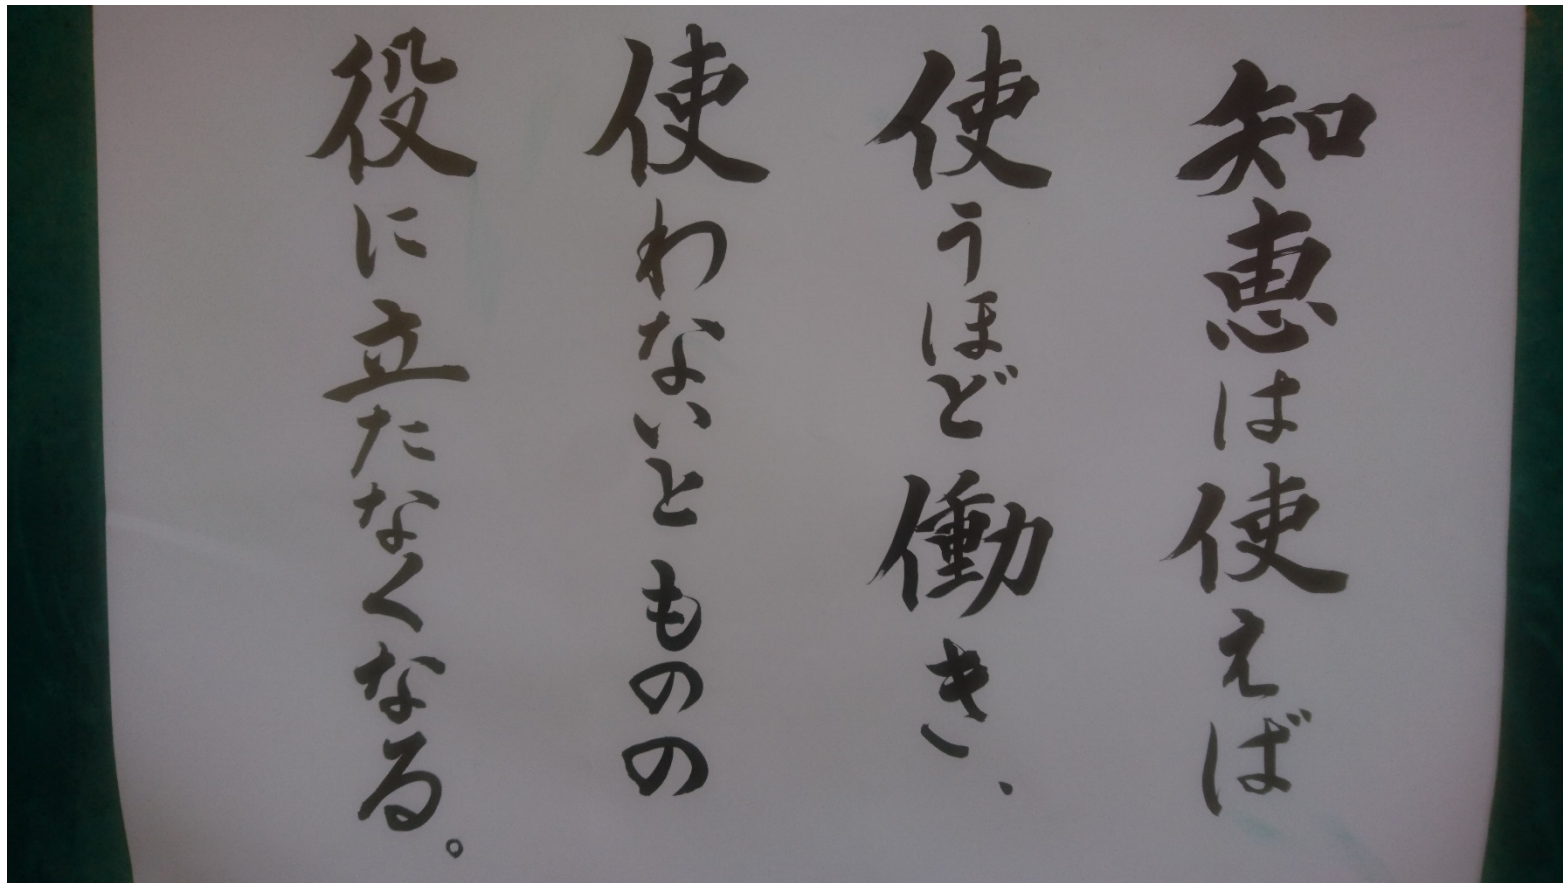 知恵は使えば
使うほど働き、
使わないとものの
役に立たなくなる。